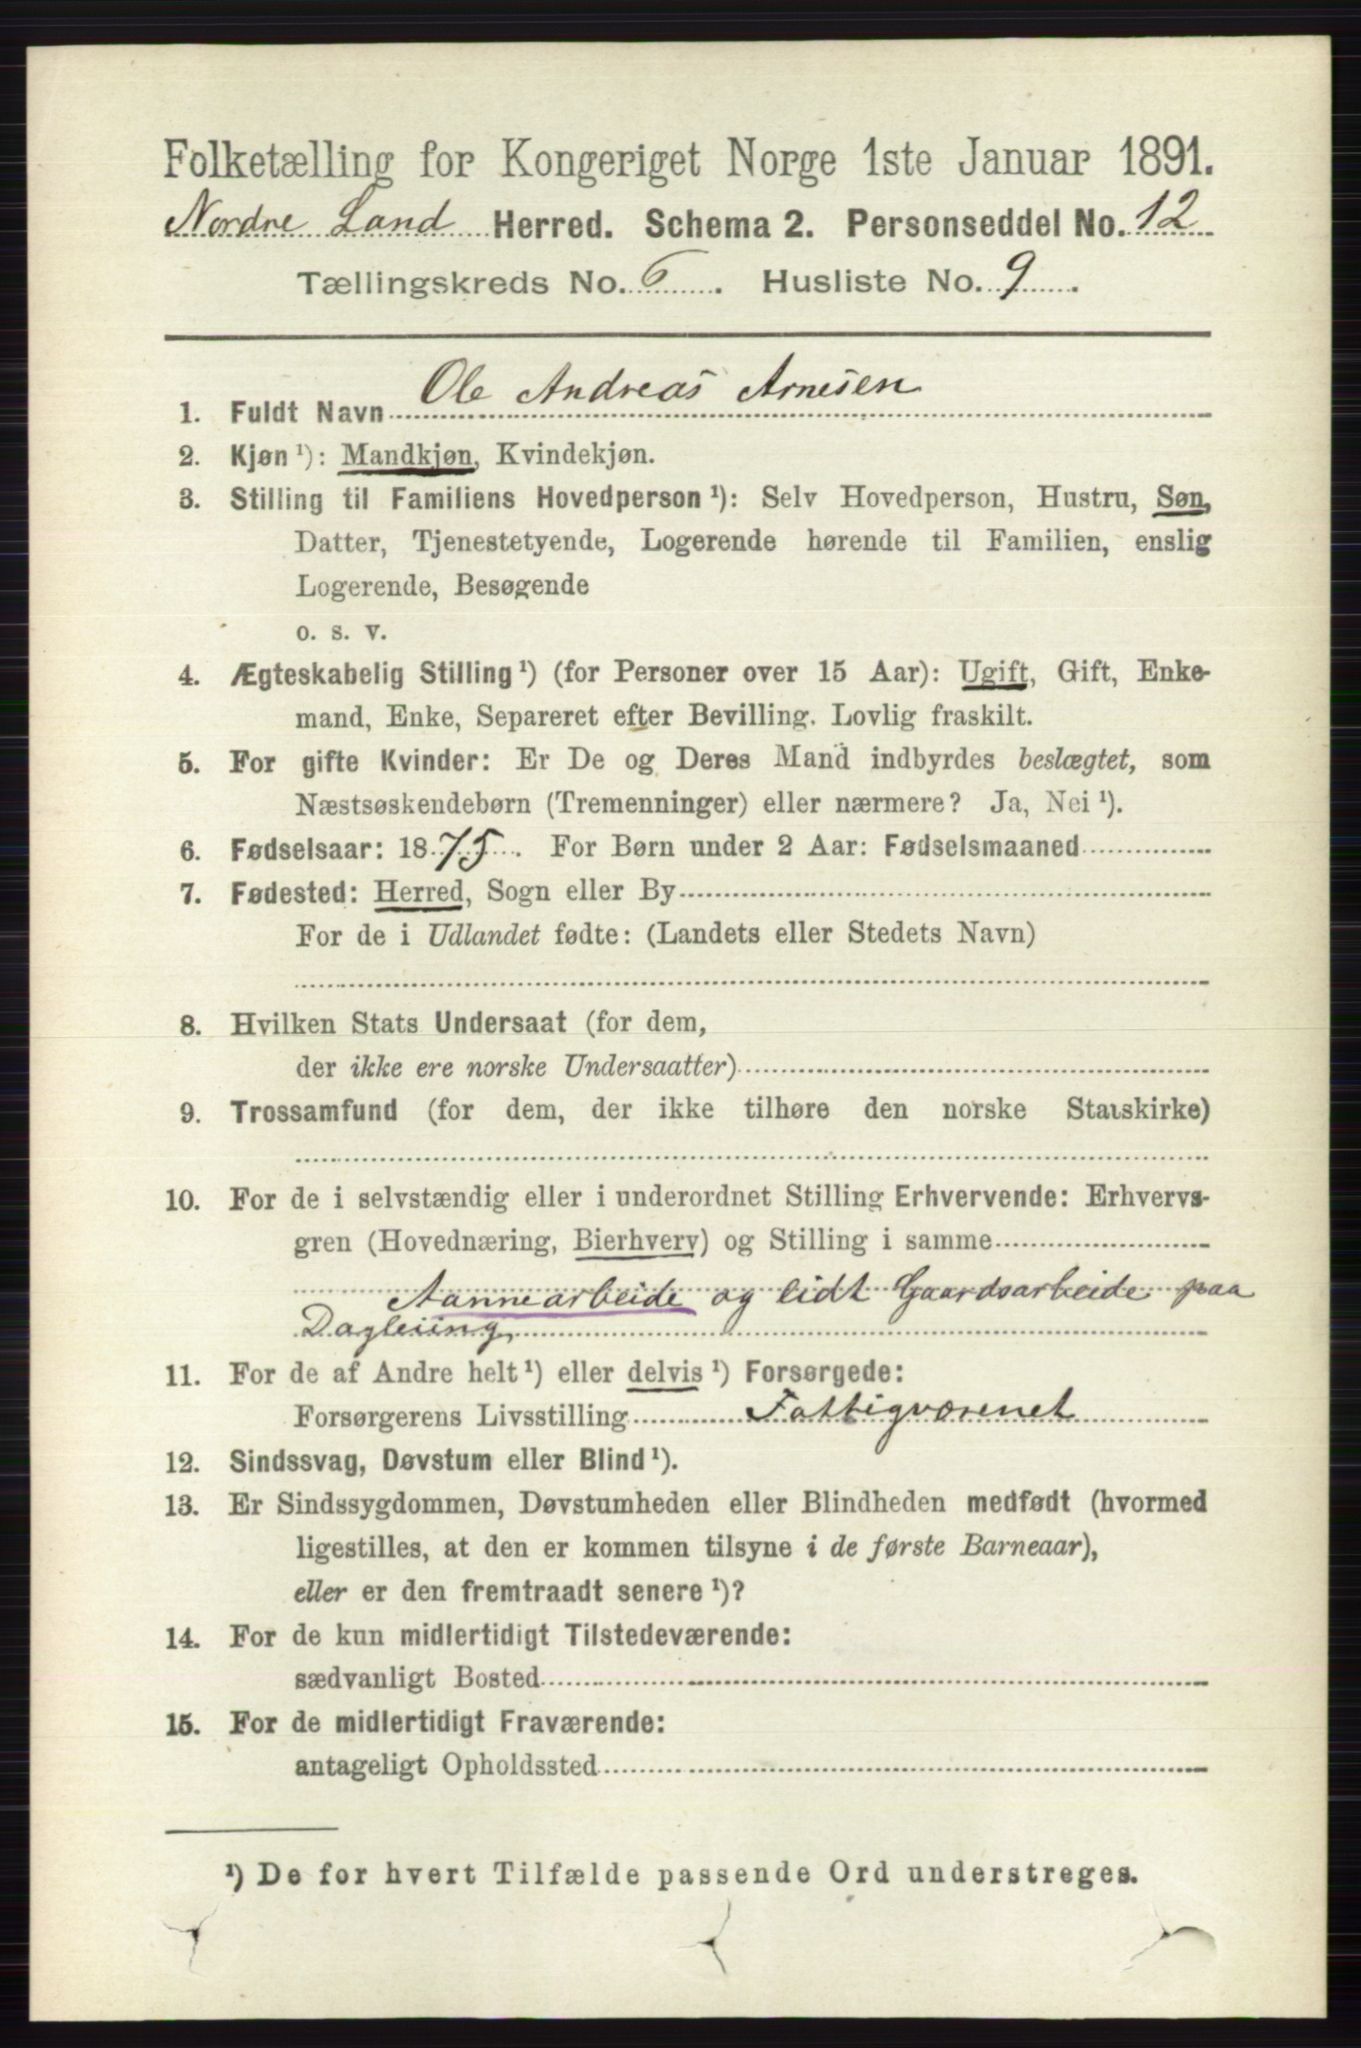 Folketælling for Kongeriget Norge 1ste Januar 1891.
Nordre Land Herred. Schema 2. Personseddel No. 12
Tællingskreds No. 6. Husliste No. 9.
1. Fuldt Navn Ole Andreas Arnesen
2. Kjøn ¹): Mandkjøn, Kvindekjøn.
3. Stilling til Familiens Hovedperson ¹): Selv Hovedperson, Hustru, Søn,
Datter, Tjenestetyende, Logerende hørende til Familien, enslig
Logerende, Besøgende
o. s. v.
4. Ægteskabelig Stilling ¹) (for Personer over 15 Aar): Ugift, Gift, Enke-
mand, Enke, Separeret efter Bevilling. Lovlig fraskilt.
5. For gifte Kvinder: Er De og Deres Mand indbyrdes beslægtet, som
Næstsøskendebørn (Tremenninger) eller nærmere? Ja, Nei ¹).
6. Fødselsaar: 1875. For Børn under 2 Aar: Fødselsmaaned
7. Fødested: Herred, Sogn eller By
For de i Udlandet fødte: (Landets eller Stedets Navn)
8. Hvilken Stats Undersaat (for dem,
der ikke ere norske Undersaatter)
9. Trossamfund (for dem, der ikke tilhøre den norske Statskirke)
10. For de i selvstændig eller i underordnet Stilling Erhvervende: Erhvervs-
gren (Hovednæring, Bierhverv) og Stilling i samme
Aannearbeide og lidt Gaardsarbeide paa
Dagleiing
11. For de af Andre helt ¹) eller delvis ¹) Forsørgede:
Forsørgerens Livsstilling Fattigvæsenet
12. Sindssvag, Døvstum eller Blind ¹).
13. Er Sindssygdommen, Døvstumheden eller Blindheden medfødt (hvormed
ligestilles, at den er kommen tilsyne i de første Barneaar),
eller er den fremtraadt senere ¹)?
14. For de kun midlertidigt Tilstedeværende:
sædvanligt Bosted
15. For de midlertidigt Fraværende:
antageligt Opholdssted
¹) De for hvert Tilfælde passende Ord understreges.